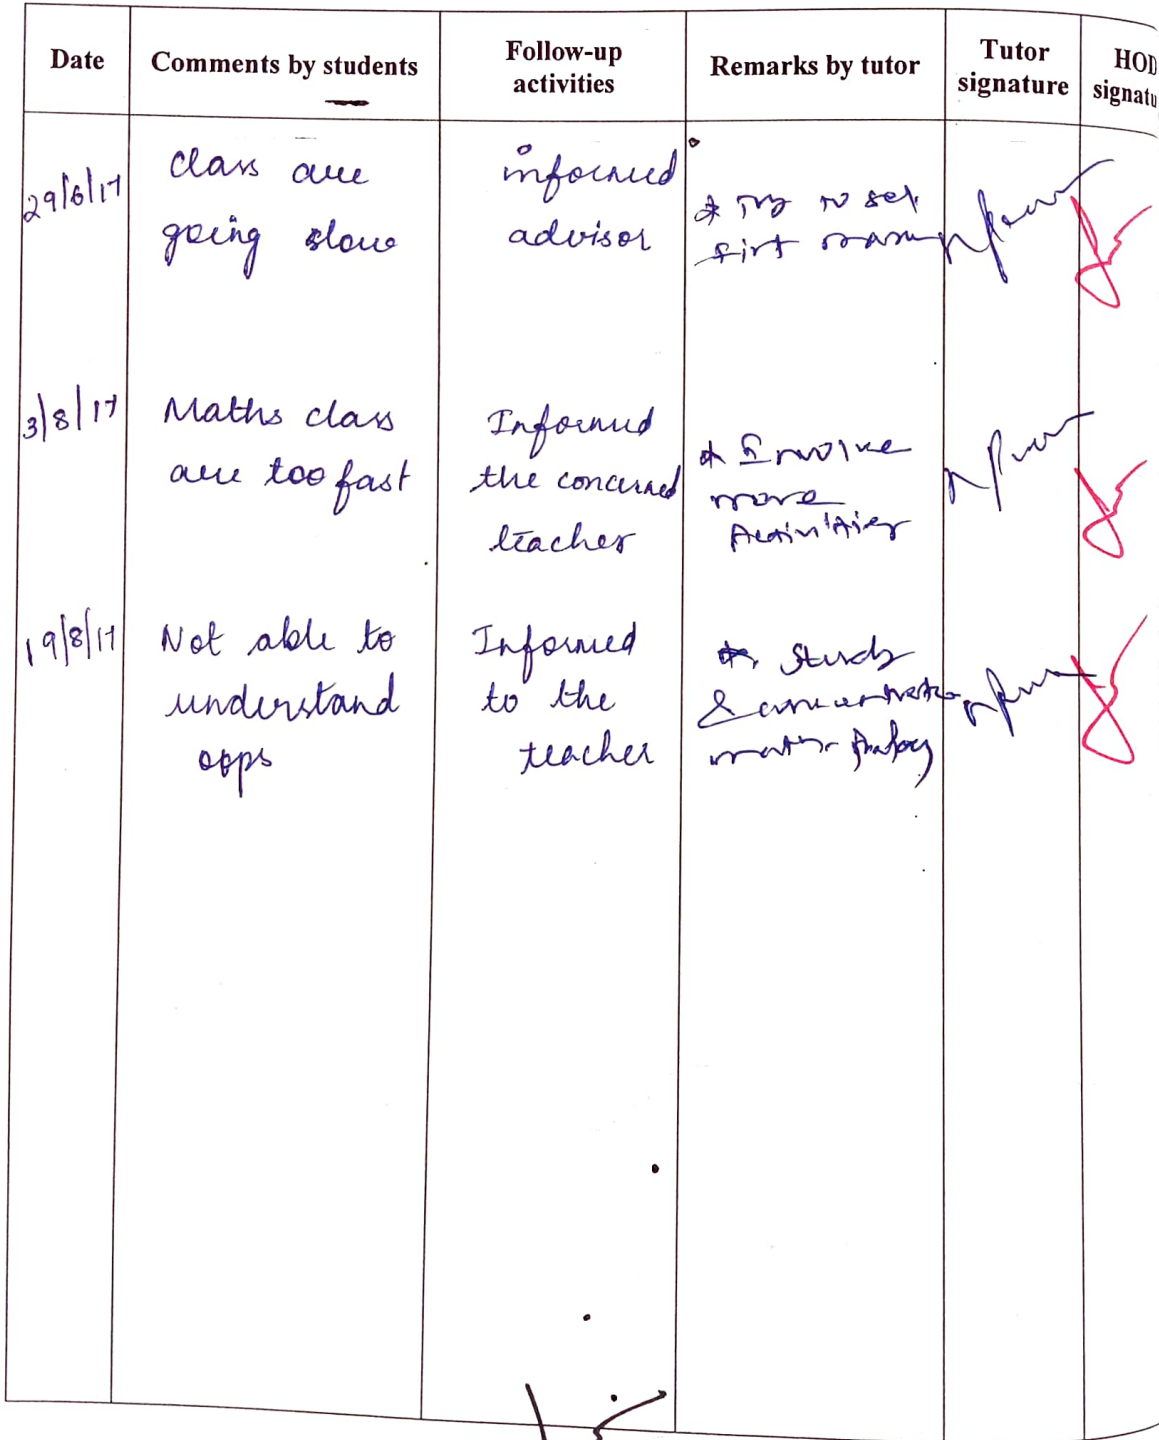 Date Comments by students Follow-up activities Remarks by tutor Tutor signature HOD signatu
29/6/17
class are
going slow
informed
advisor
Try to
first
3/8/17
Maths class
are too fast
Informed
the concerned
teacher
Involve
more
Activities
19/8/17
Not able to
understand
oops
Informed
to the
teacher
Study
&